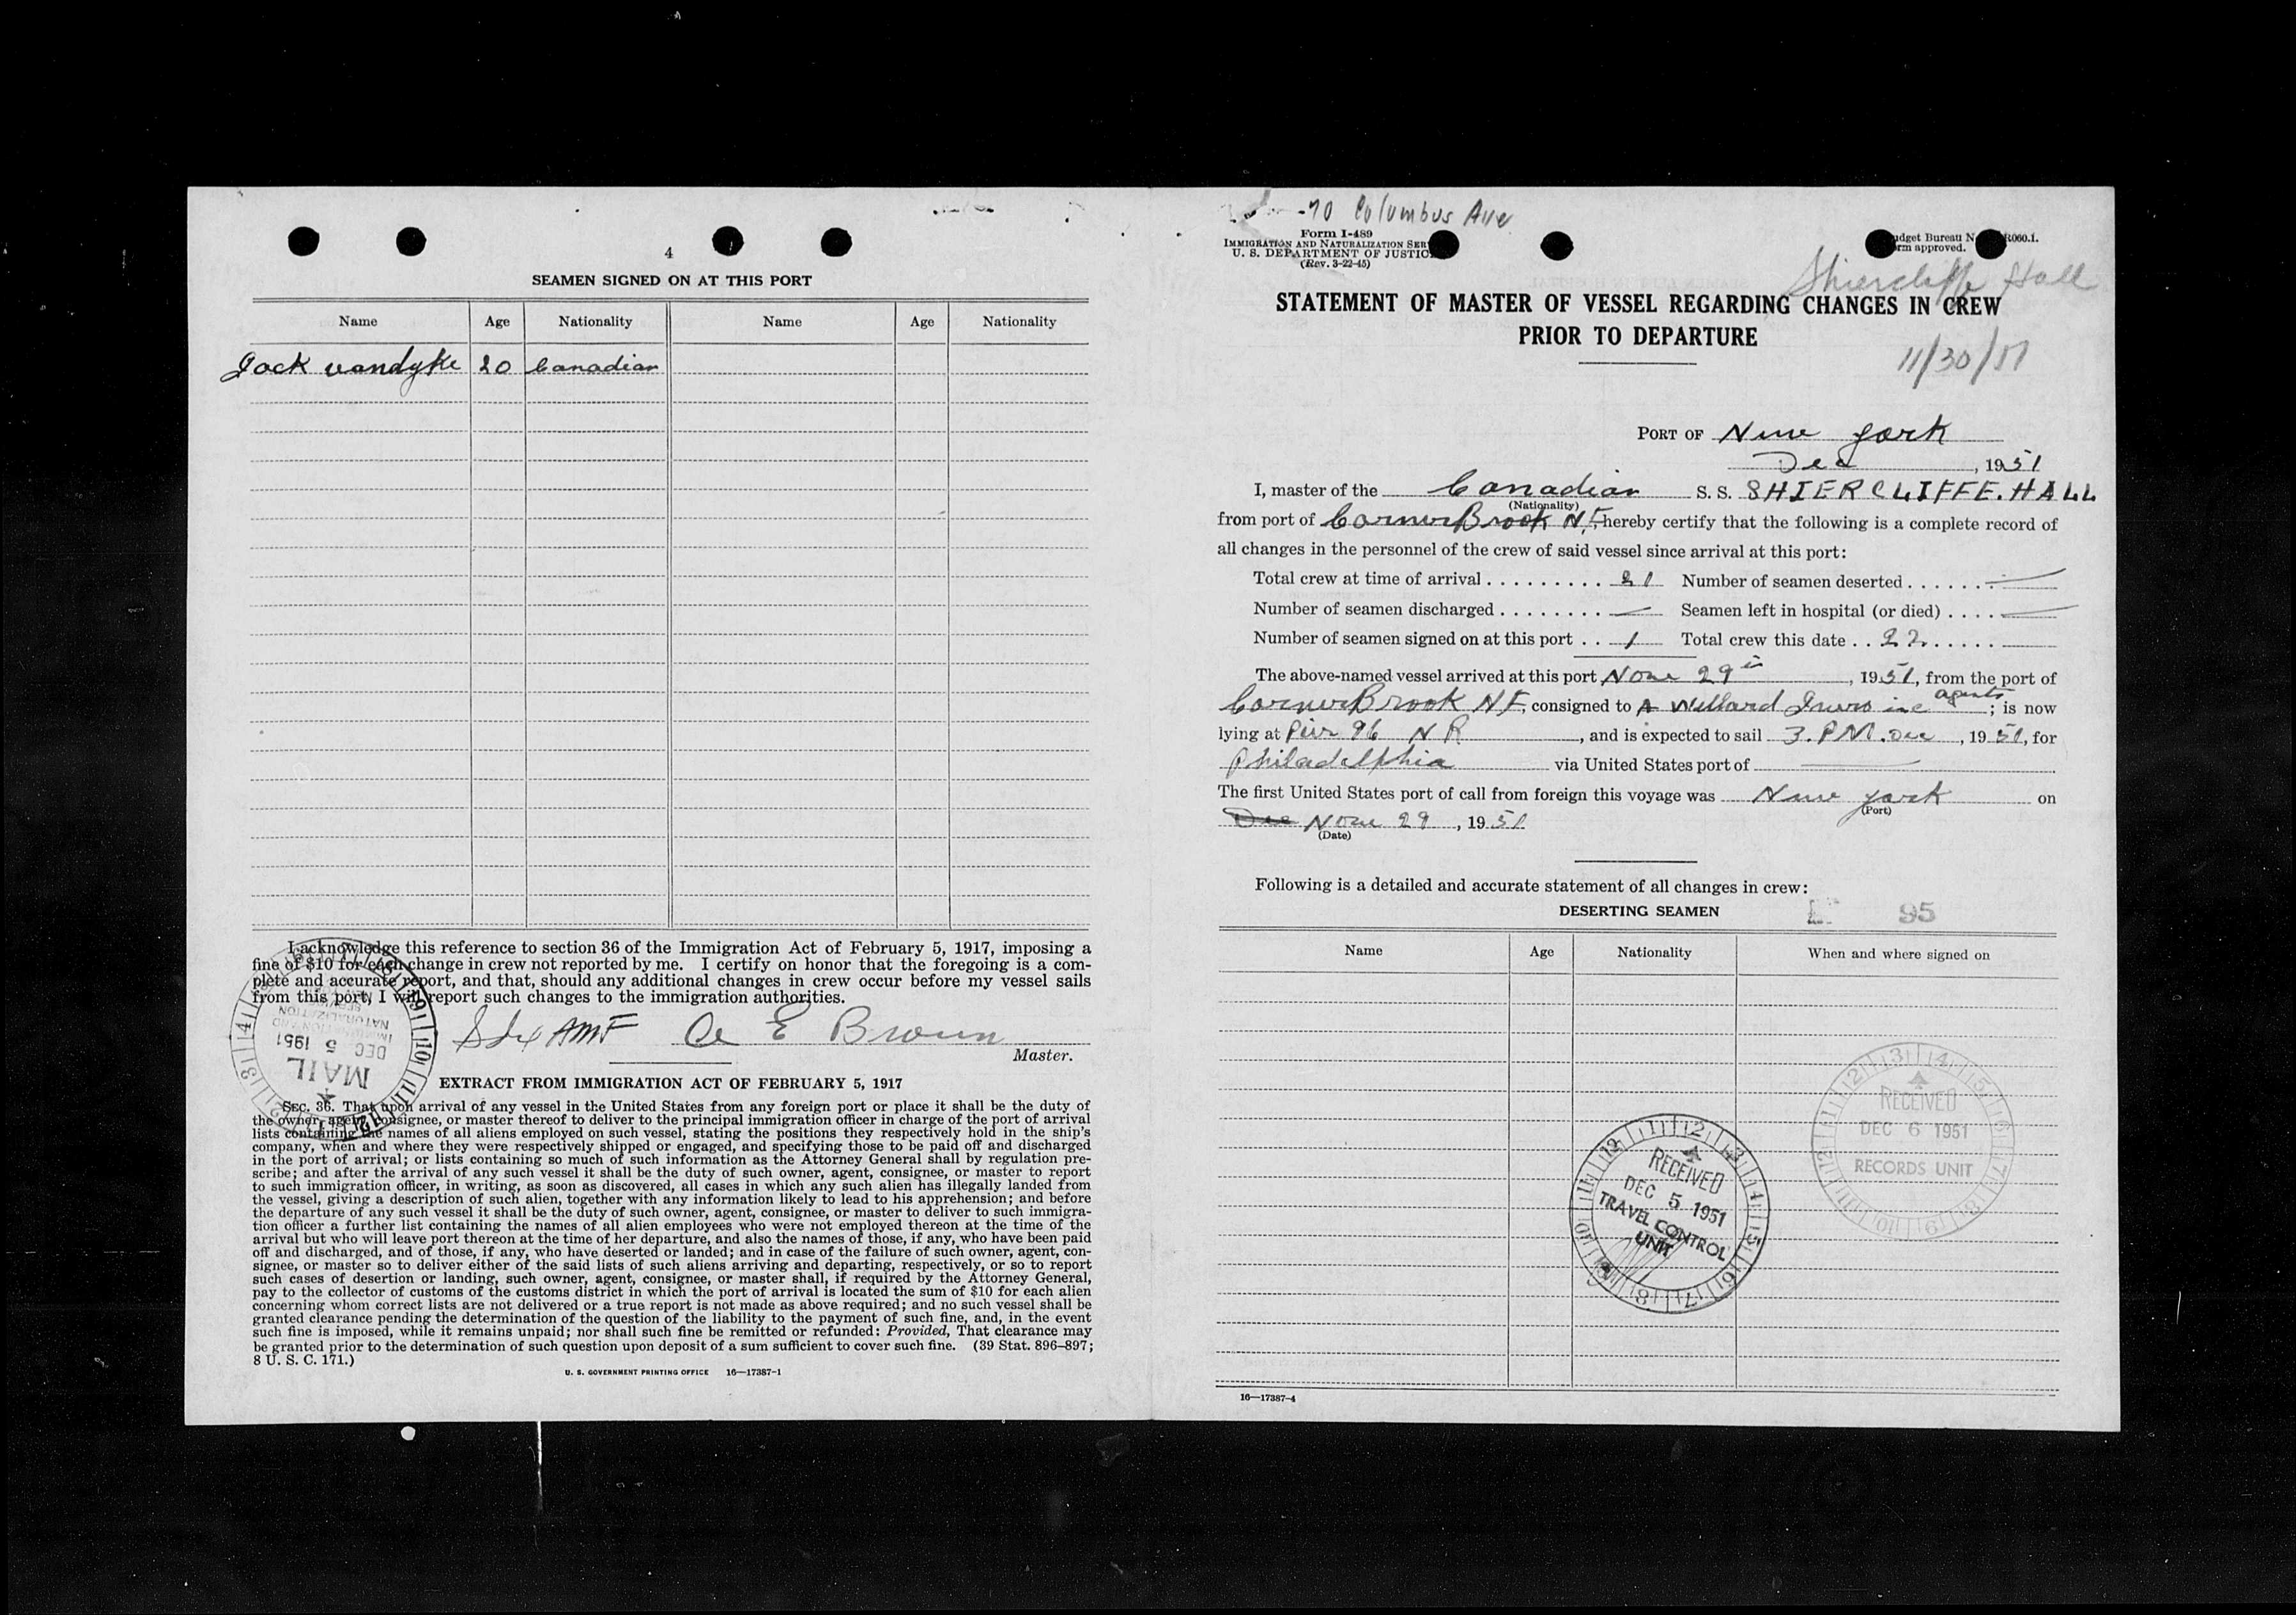 4
SEAMEN SIGNED ON AT THIS PORT
Name Age Nationality Name Age Nationality
Jack vandyke 20 Canadian
I acknowledge this reference to section 36 of the Immigration Act of February 5, 1917, imposing a
fine of $10 for each change in crew not reported by me. I certify on honor that the foregoing is a com-
plete and accurate report, and that, should any additional changes in crew occur before my vessel sails
from this port, I will report such changes to the immigration authorities.
E Brown
Master.
MAIL
DEC 5 1951
IMMIGRATION AND
NATURALIZATION
EXTRACT FROM IMMIGRATION ACT OF FEBRUARY 5, 1917
SEC. 36. That upon arrival of any vessel in the United States from any foreign port or place it shall be the duty of
the owner, agent, consignee, or master thereof to deliver to the principal immigration officer in charge of the port of arrival
lists containing the names of all aliens employed on such vessel, stating the positions they respectively hold in the ship's
company, when and where they were respectively shipped or engaged, and specifying those to be paid off and discharged
in the port of arrival; or lists containing so much of such information as the Attorney General shall by regulation pre-
scribe; and after the arrival of any such vessel it shall be the duty of such owner, agent, consignee, or master to report
to such immigration officer, in writing, as soon as discovered, all cases in which any such alien has illegally landed from
the vessel, giving a description of such alien, together with any information likely to lead to his apprehension; and before
the departure of any such vessel it shall be the duty of such owner, agent, consignee, or master to deliver to such immigra-
tion officer a further list containing the names of all alien employees who were not employed thereon at the time of the
arrival but who will leave port thereon at the time of her departure, and also the names of those, if any, who have been paid
off and discharged, and of those, if any, who have deserted or landed; and in case of the failure of such owner, agent, con-
signee, or master so to deliver either of the said lists of such aliens arriving and departing, respectively, or so to report
such cases of desertion or landing, such owner, agent, consignee, or master shall, if required by the Attorney General,
pay to the collector of customs of the customs district in which the port of arrival is located the sum of $10 for each alien
concerning whom correct lists are not delivered or a true report is not made as above required; and no such vessel shall be
granted clearance pending the determination of the question of the liability to the payment of such fine, and, in the event
such fine is imposed, while it remains unpaid; nor shall such fine be remitted or refunded: Provided, That clearance may
be granted prior to the determination of such question upon deposit of a sum sufficient to cover such fine. (39 Stat. 896–897;
8 U. S. C. 171.)
U. S. GOVERNMENT PRINTING OFFICE 16—17387-1
70 Columbus Ave
Form I-489
IMMIGRATION AND NATURALIZATION SER
U. S. DEPARTMENT OF JUSTIC
(Rev. 3-22-45)
dget Bureau N R060.1.
rm approved.
Shiercliffe Hall
STATEMENT OF MASTER OF VESSEL REGARDING CHANGES IN CREW
PRIOR TO DEPARTURE
11/30/51
PORT OF New York
Dec, 1951
I, master of the Canadian S. S. SHIERCLIFFE. HALL
(Nationality)
from port of CornerBrook NF, hereby certify that the following is a complete record of
all changes in the personnel of the crew of said vessel since arrival at this port:
Total crew at time of arrival . . . . . . . . . . 21 Number of seamen deserted . . . . . . . —
Number of seamen discharged . . . . . . . . — Seamen left in hospital (or died) . . . . —
Number of seamen signed on at this port . . 1 Total crew this date . . 22 . . . . . .
The above-named vessel arrived at this port Nove 29, 1951, from the port of
CornerBrook NF, consigned to A Willard inc agents; is now
lying at Pier 96 N R, and is expected to sail 3. PM. Dec, 1951, for
Philadelphia via United States port of —
The first United States port of call from foreign this voyage was New York on
(Port)
Dec Nove 29, 1951
(Date)
Following is a detailed and accurate statement of all changes in crew:
DESERTING SEAMEN 95
Name Age Nationality When and where signed on
RECEIVED
DEC 5 1951
TRAVEL CONTROL
UNIT
RECEIVED
DEC 6 1951
RECORDS UNIT
16—17387-4